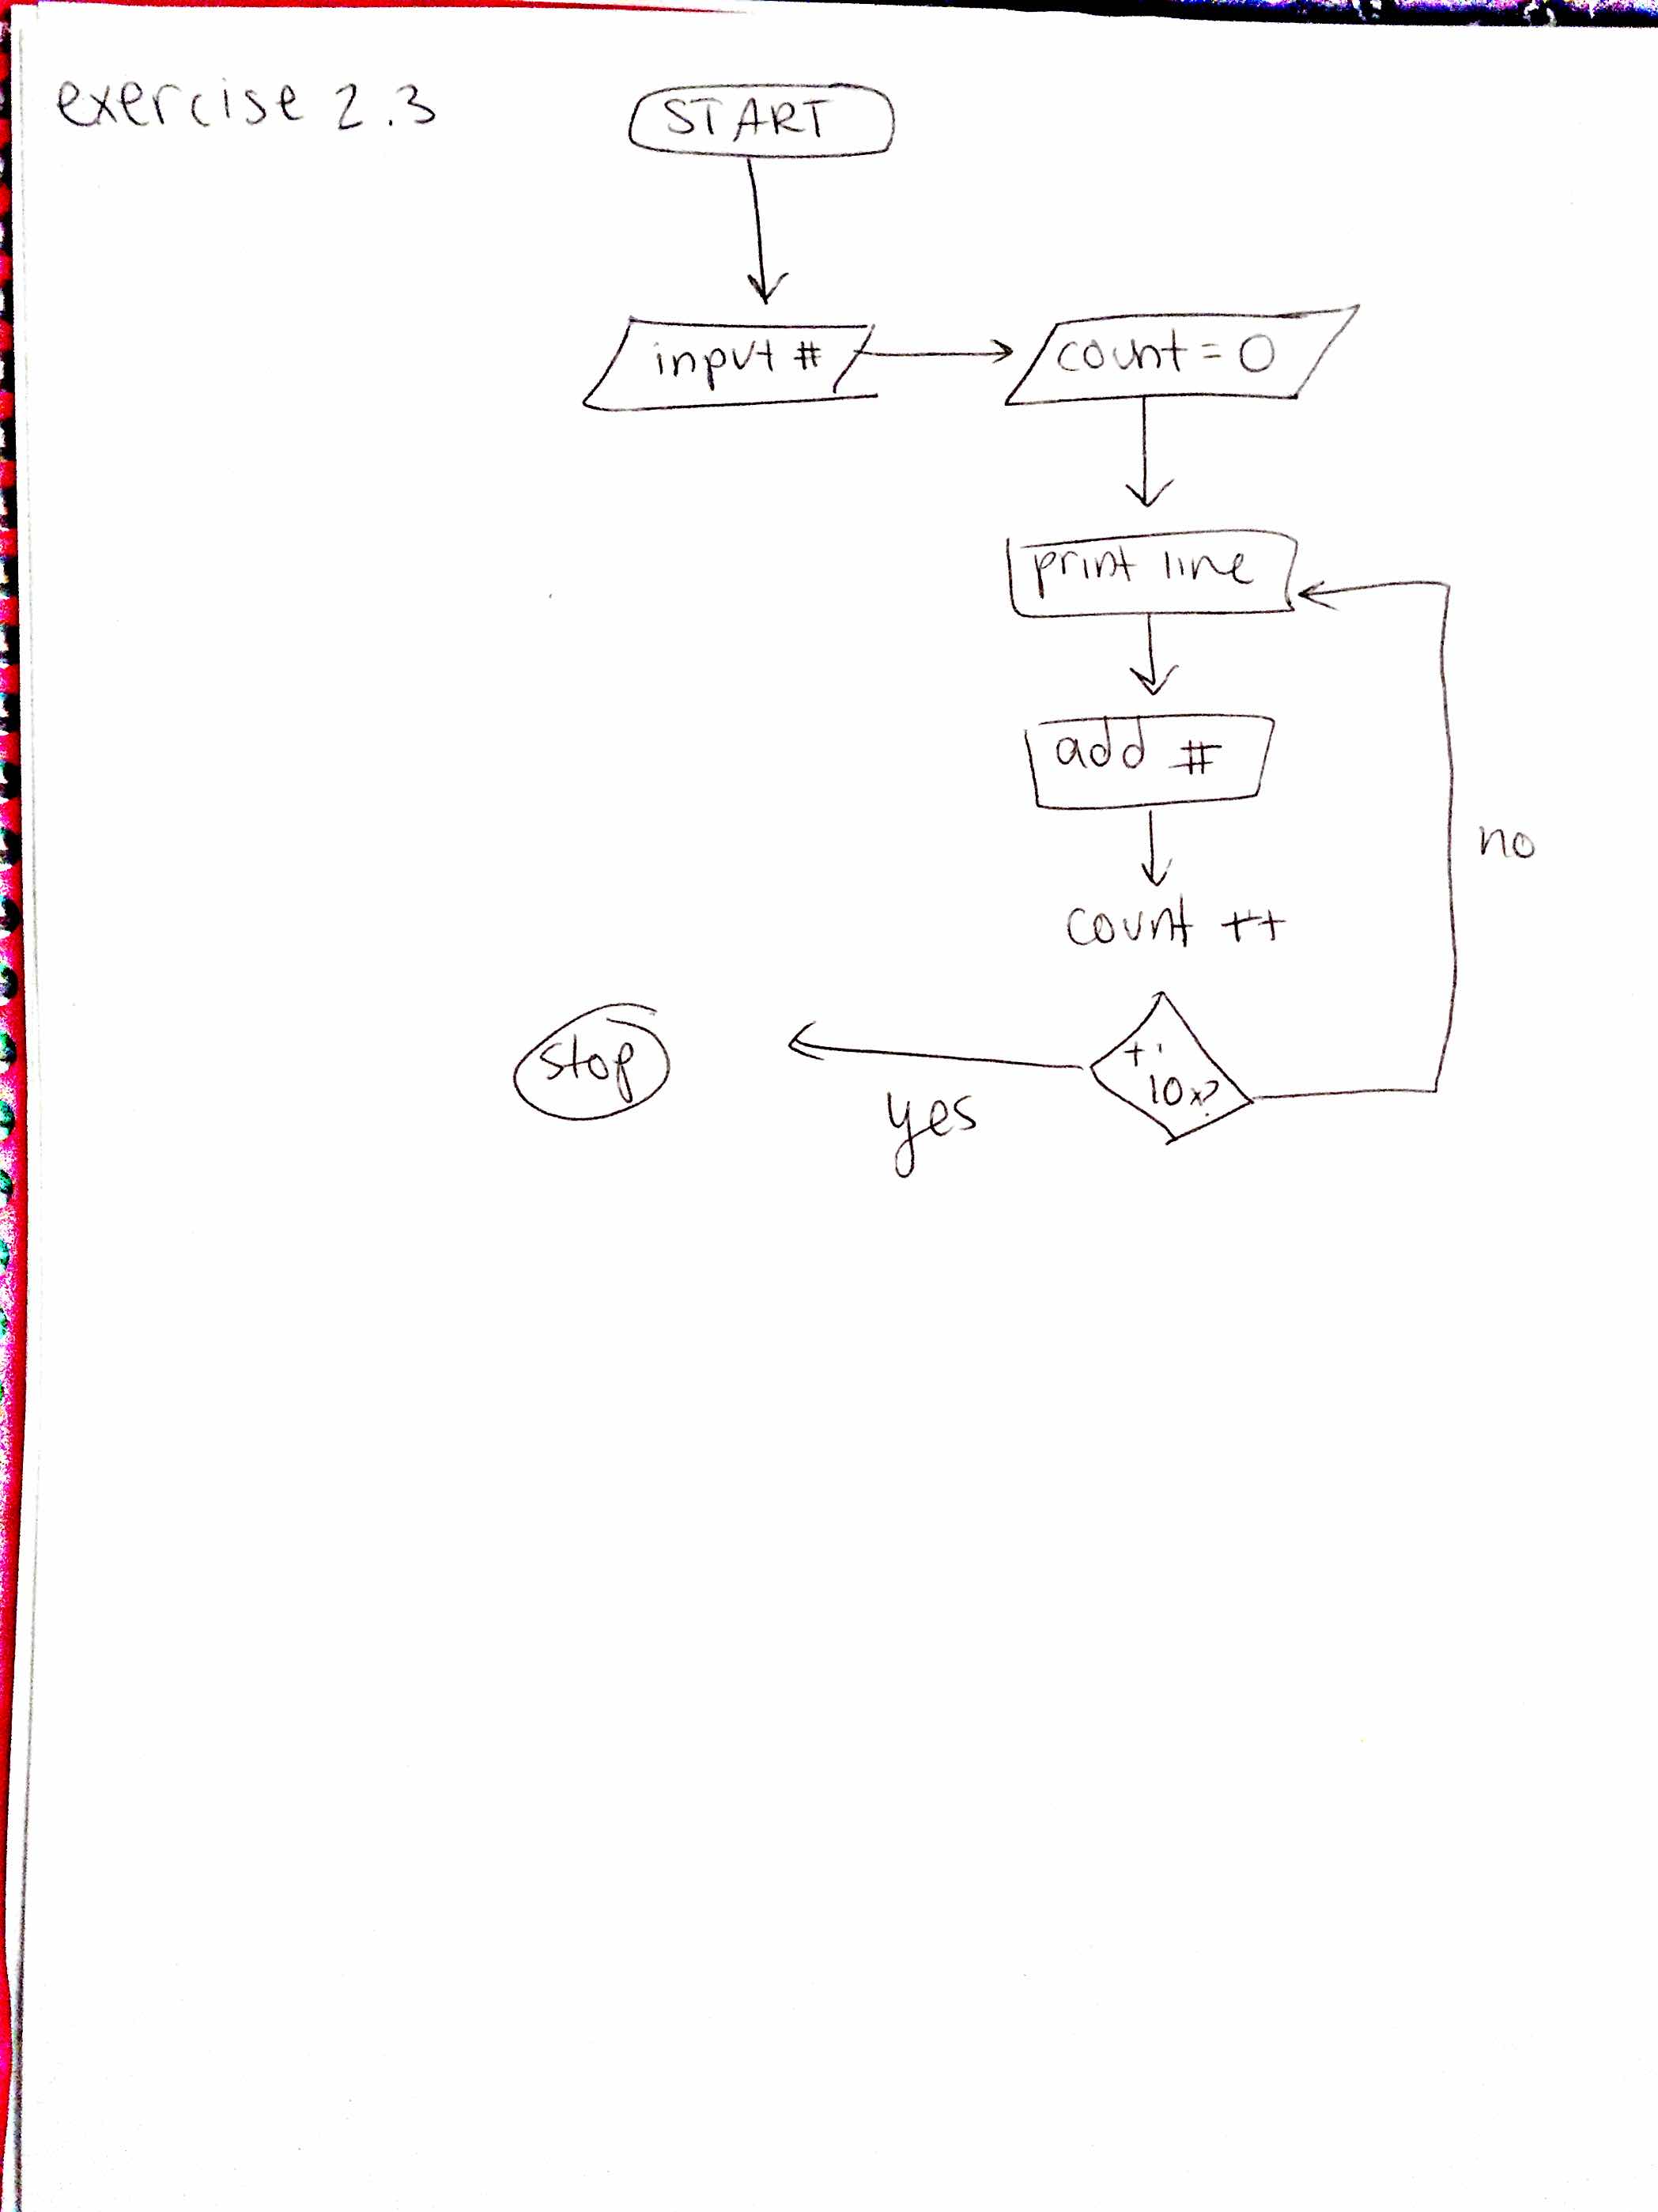 exercise 2.3
START
input #
count = 0
print line
add #
count ++
10x?
no
yes
stop